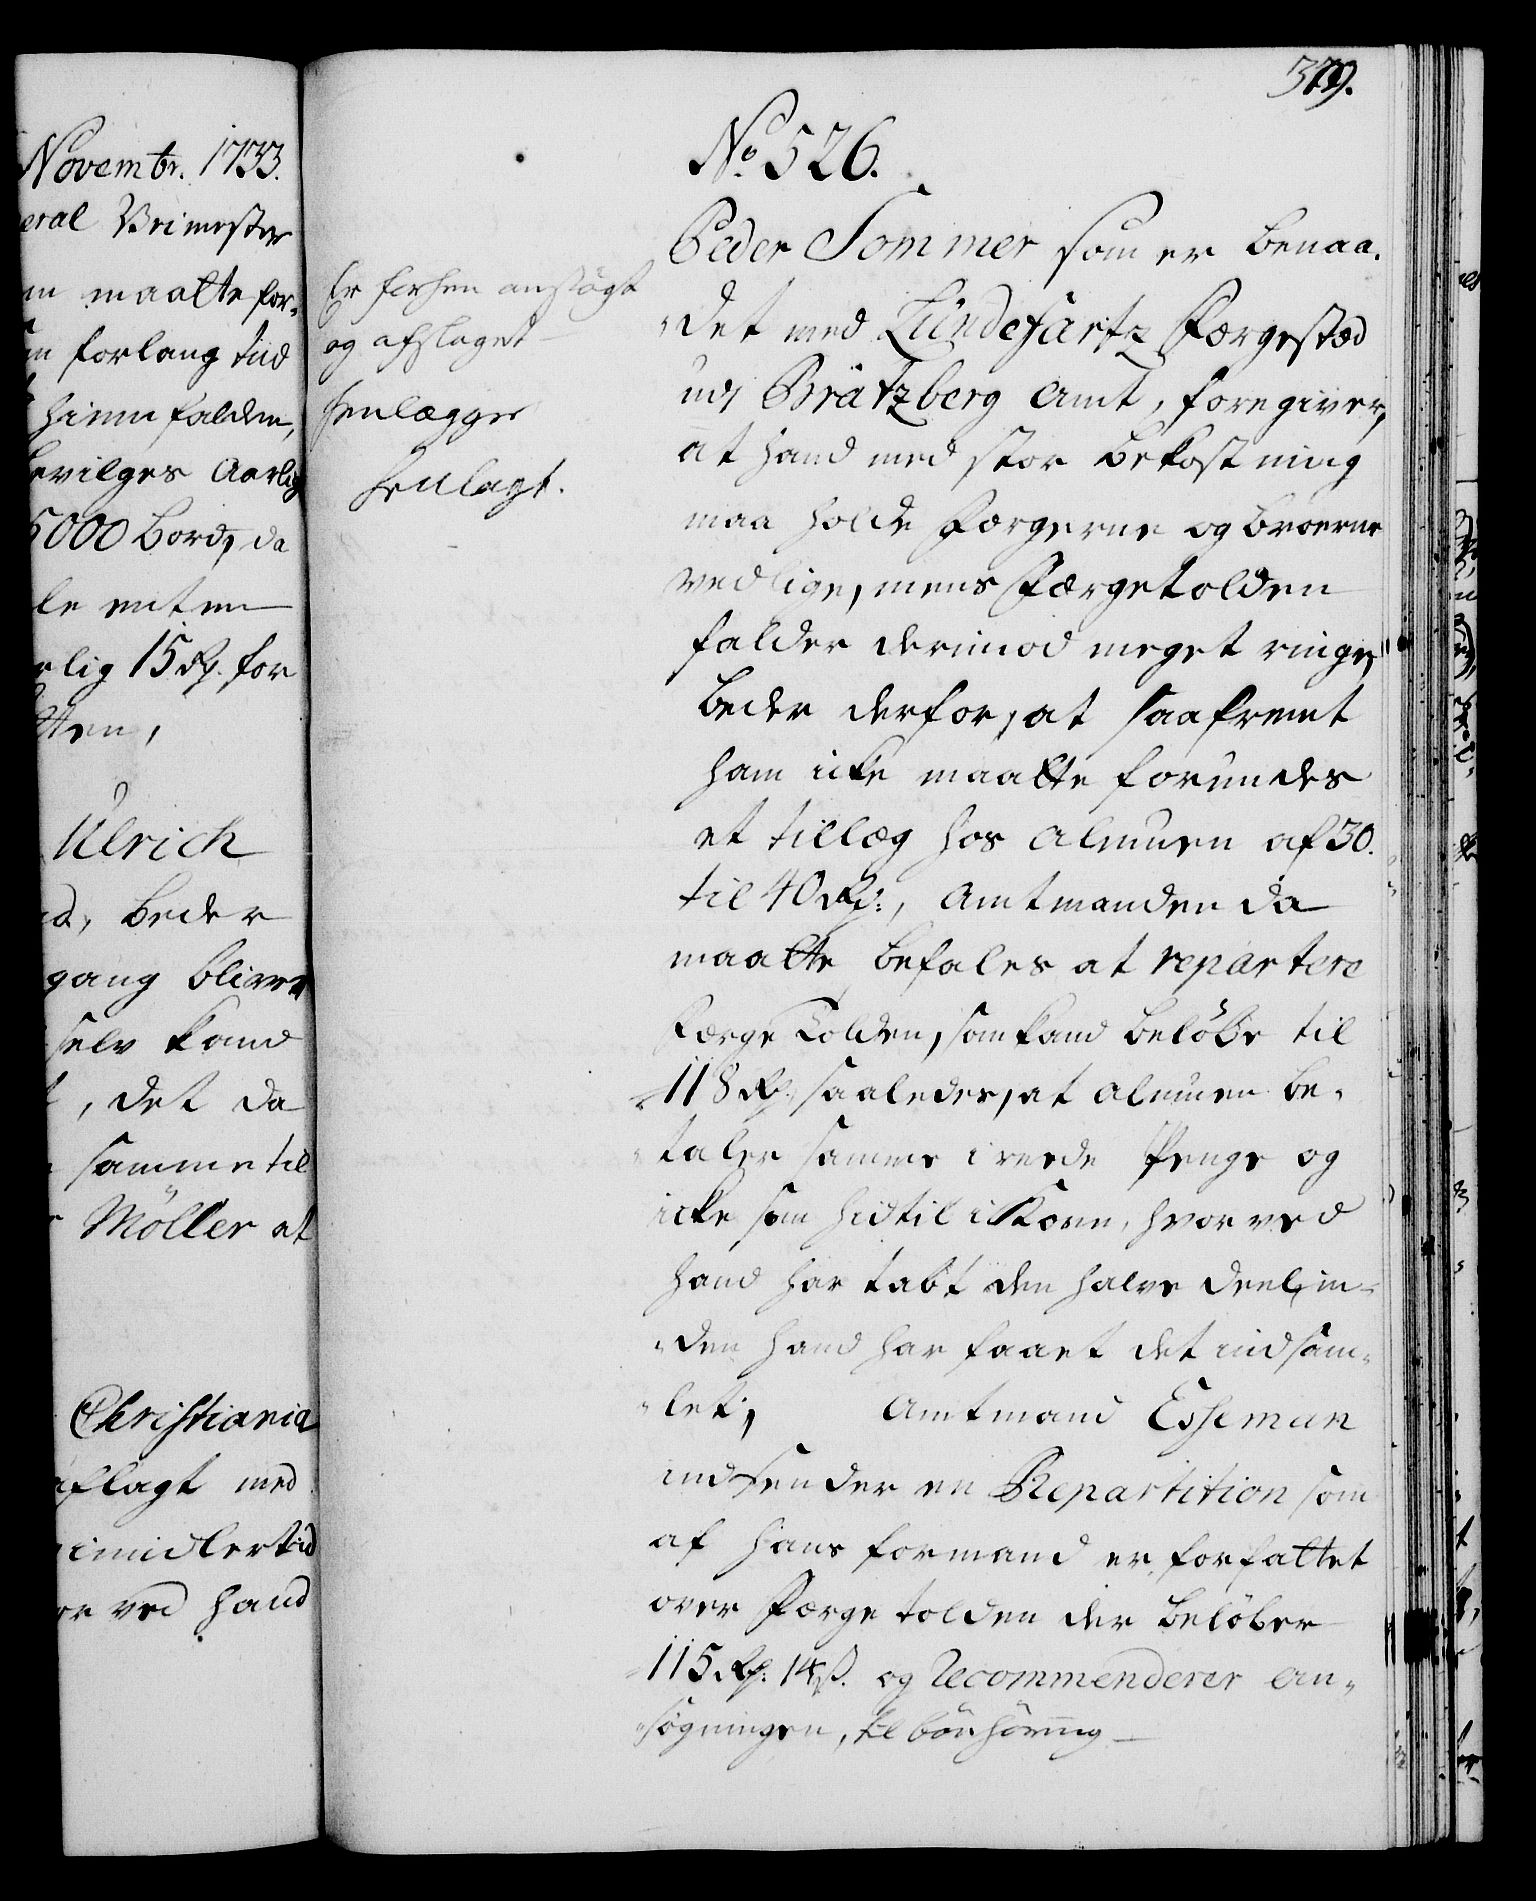 Novembr. 1733.
eral Veimester
maatte for-
forlang tiid
hiemfalden,
bevilges Aarlig
5000 Bord, da
le enten
rlig 15 Rd. for
tten,
Ulrich
beder
gang bliver
selv kand
, det da
samme til
Möller at
Christiania
aflagt med
imidlertid
or ved hand
379.
No. 526.
Peder Sommer som er benaa-
det med Lündefartz Færgestæd
udj Bratzberg Amt, foregiver,
at hand med stor bekostning
maa holde Færgerne og broerne
vedlige, mens Færgetolden
falder derimod meget ringe,
beder derfor, at saafremt
ham icke maatte forundes
et tillæg hos Almuen af 30.
til 40 Rd:, Amtmanden da
maatte befales at repartere
Færge Tolden, som kand beløbe til
118 Rd, saaledes, at Almuen be-
taler samme i reede Penge og
icke som hidtil i Korn, hvorved
hand har tabt den halve Deel, in-
den hand har faaet det indsam-
let, Amtmand Esseman
indsender en Repartition som
af hans formand er forfattet
over Færgetolden der beløber
115 Rd. 14 ß. og recommenderer An-
søgningen, til bönhöring
Er forhen ansøgt
og afslaget
henlægges
Henlagt.